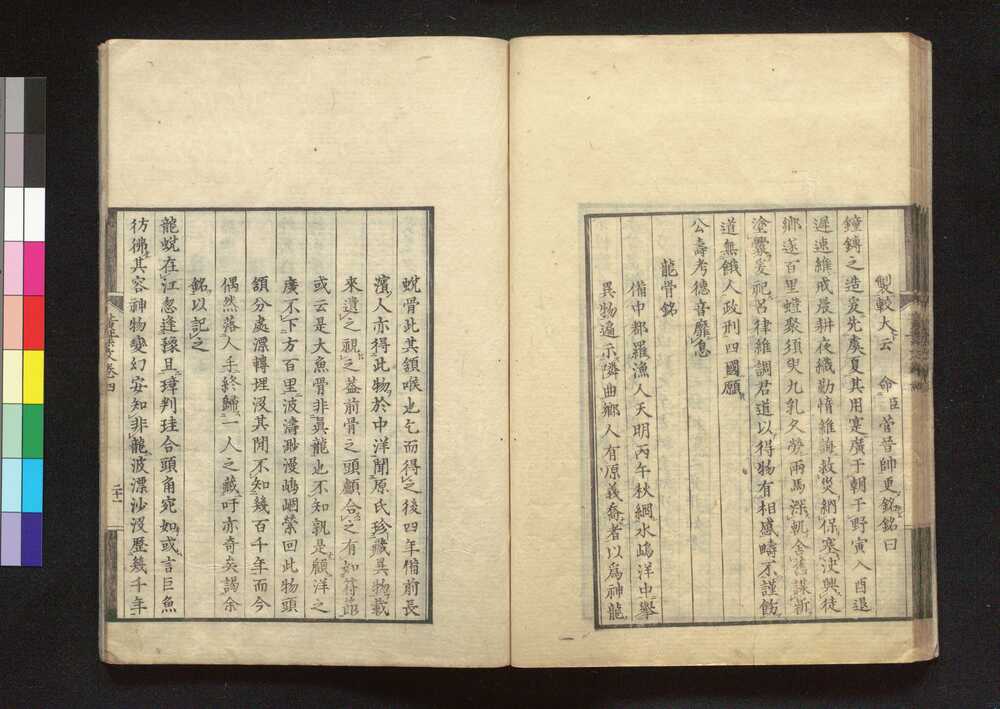 製較大云　命臣菅晉帥更銘銘曰
鐘鏄之造爰先虞夏其用寔廣于朝于野寅入酉退
遲速維戒晨耕夜織勸惰維誨救災網保塞決興徒
鄉遂百里螘聚須臾九乳久勞兩馬深軌舍舊謀新
塗釁爰祀呂律維調君道以得物有相感疇不謹飭
道無餓人政刑四國願
公壽考德音靡息
龍骨銘
備中都羅漁人天明丙午秋網水嶋洋中舉
異物遍示隣曲鄉人有原義喬者以爲神龍
蛻骨此其頷喉也乞而得之後四年備前長
濱人亦得此物於中洋聞原氏珍藏異物載
來遺之視之蓋前骨之頭顱合之有如符節
或云是大魚骨非眞龍也不知孰是顧洋之
廣不下方百里波濤渺漫嶋嶼縈回此物頭
頷分處漂轉埋沒其閒不知幾百千年而今
偶然落人手終歸一人之藏吁亦奇矣謁余
銘以記之
龍蛻在江忽逢豫且璋判珪合頭角宛如或言巨魚
彷彿其容神物變幻安知非龍波漂沙沒歷幾千年
文卷四
二十一